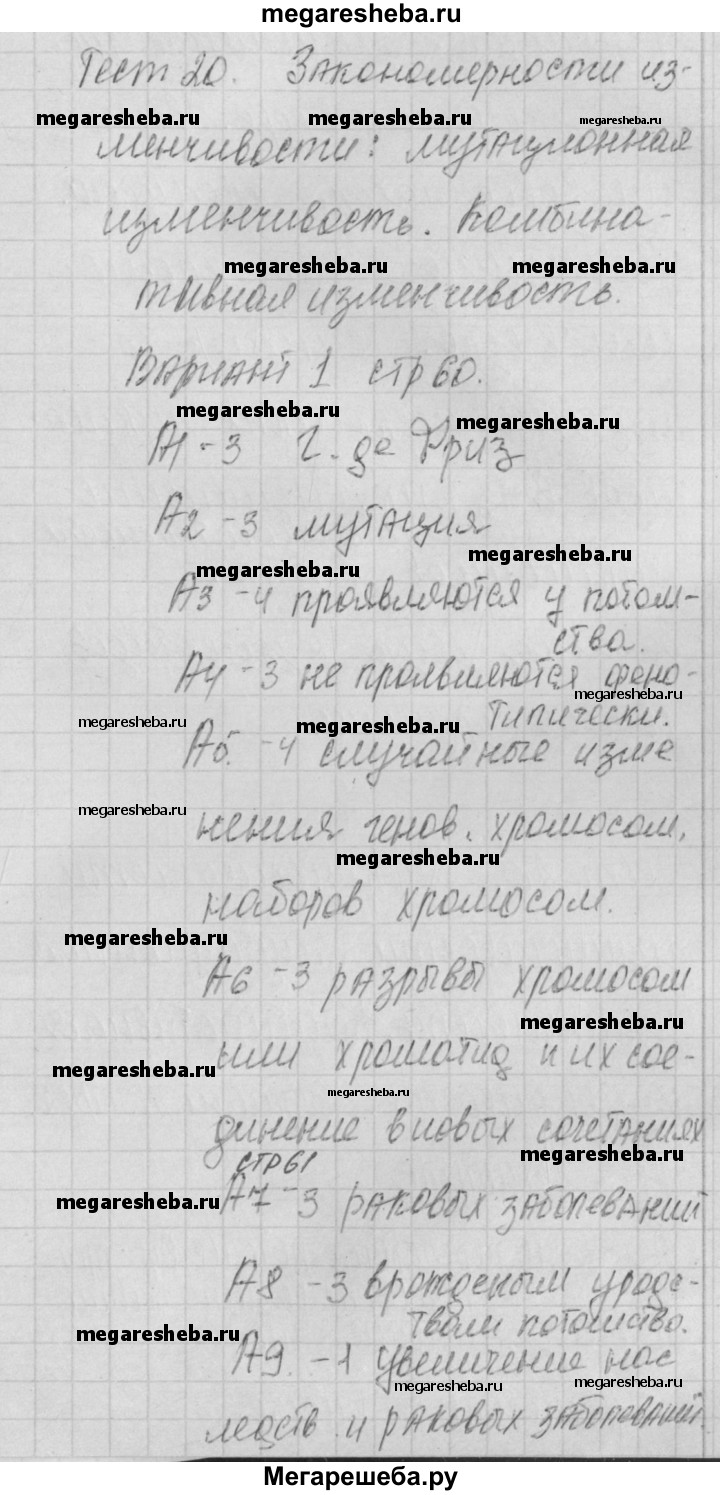 megaresheba.ru
Тест 20. Закономерности из-
megaresheba.ru megaresheba.ru megaresheba.ru
менчивости: мутационная
изменчивость. Комбина-
megaresheba.ru megaresheba.ru
тивная изменчивость.
Вариант 1 стр 60.
megaresheba.ru megaresheba.ru
А1 - 3 Г. де Фриз
А2 - 3 мутация
megaresheba.ru megaresheba.ru
А3 - 4 проявляются у потом-
ства.
А4 - 3 не проявляются фено-
megaresheba.ru
типически.
megaresheba.ru megaresheba.ru
А5. - 4 случайные изме
megaresheba.ru
нения генов, хромосом,
megaresheba.ru
наборов хромосом.
megaresheba.ru
А6 - 3 разрывы хромосом
megaresheba.ru
или хроматид и их сое-
megaresheba.ru
megaresheba.ru
динение в новых сочетаниях
megaresheba.ru
стр 61
А7 - 3 раковых заболеваний
megaresheba.ru
А8 - 3 врожденым уродс-
твам потомство.
megaresheba.ru
А9. - 1 увеличение нас
megaresheba.ru megaresheba.ru
ледств. и раковых заболеваний.
Мегарешеба.ру